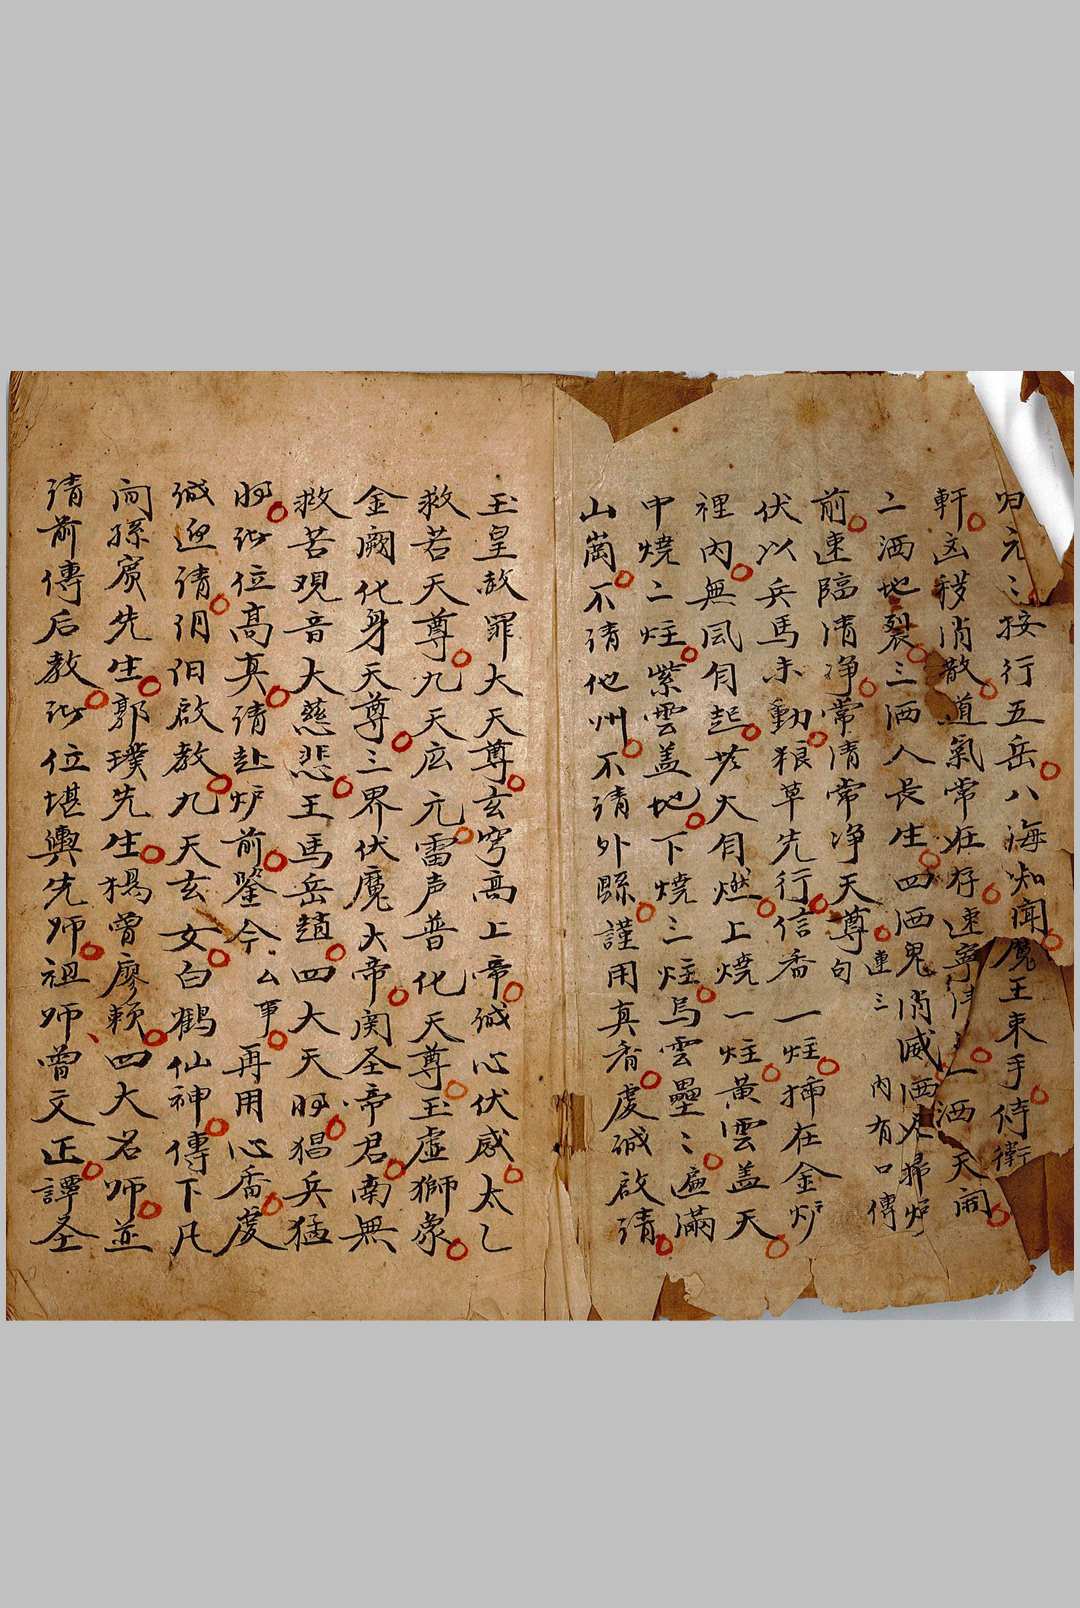 归元〻按行五岳八海知聞魔王束手侍衛
軒凶穢消散道氣常在存速寧清一洒天開
二洒地裂三洒人長生四洒鬼消滅洒掃炉
前速臨清净常清常净天尊句連三內有口傳
伏以兵馬未動粮草先行信香一炷揷在金炉
裡內無風自起火自燃上燒一炷黃雲盖天
中燒二炷紫雲盖地下燒三炷烏雲壘〻遍滿
山崗不請他州不請外縣謹用真香虔誠啟請
玉皇赦罪大天尊玄穹高上帝诚心伏感太乙
救苦天尊九天应元雷声普化天尊玉虚獅象
金阙化身天尊三界伏魔大帝関圣帝君南無
救苦观音大慈悲王馬岳趙四大天将猖兵猛
将诸位高真请赴炉前鑒今厶事再用心香虔
诚迎请阴阳啟教九天玄女白鶴仙神傳下凡
间孫宾先生郭璞先生楊曾廖赖四大名师並
请前傳后教诸位堪輿先师祖师曾文正譚圣